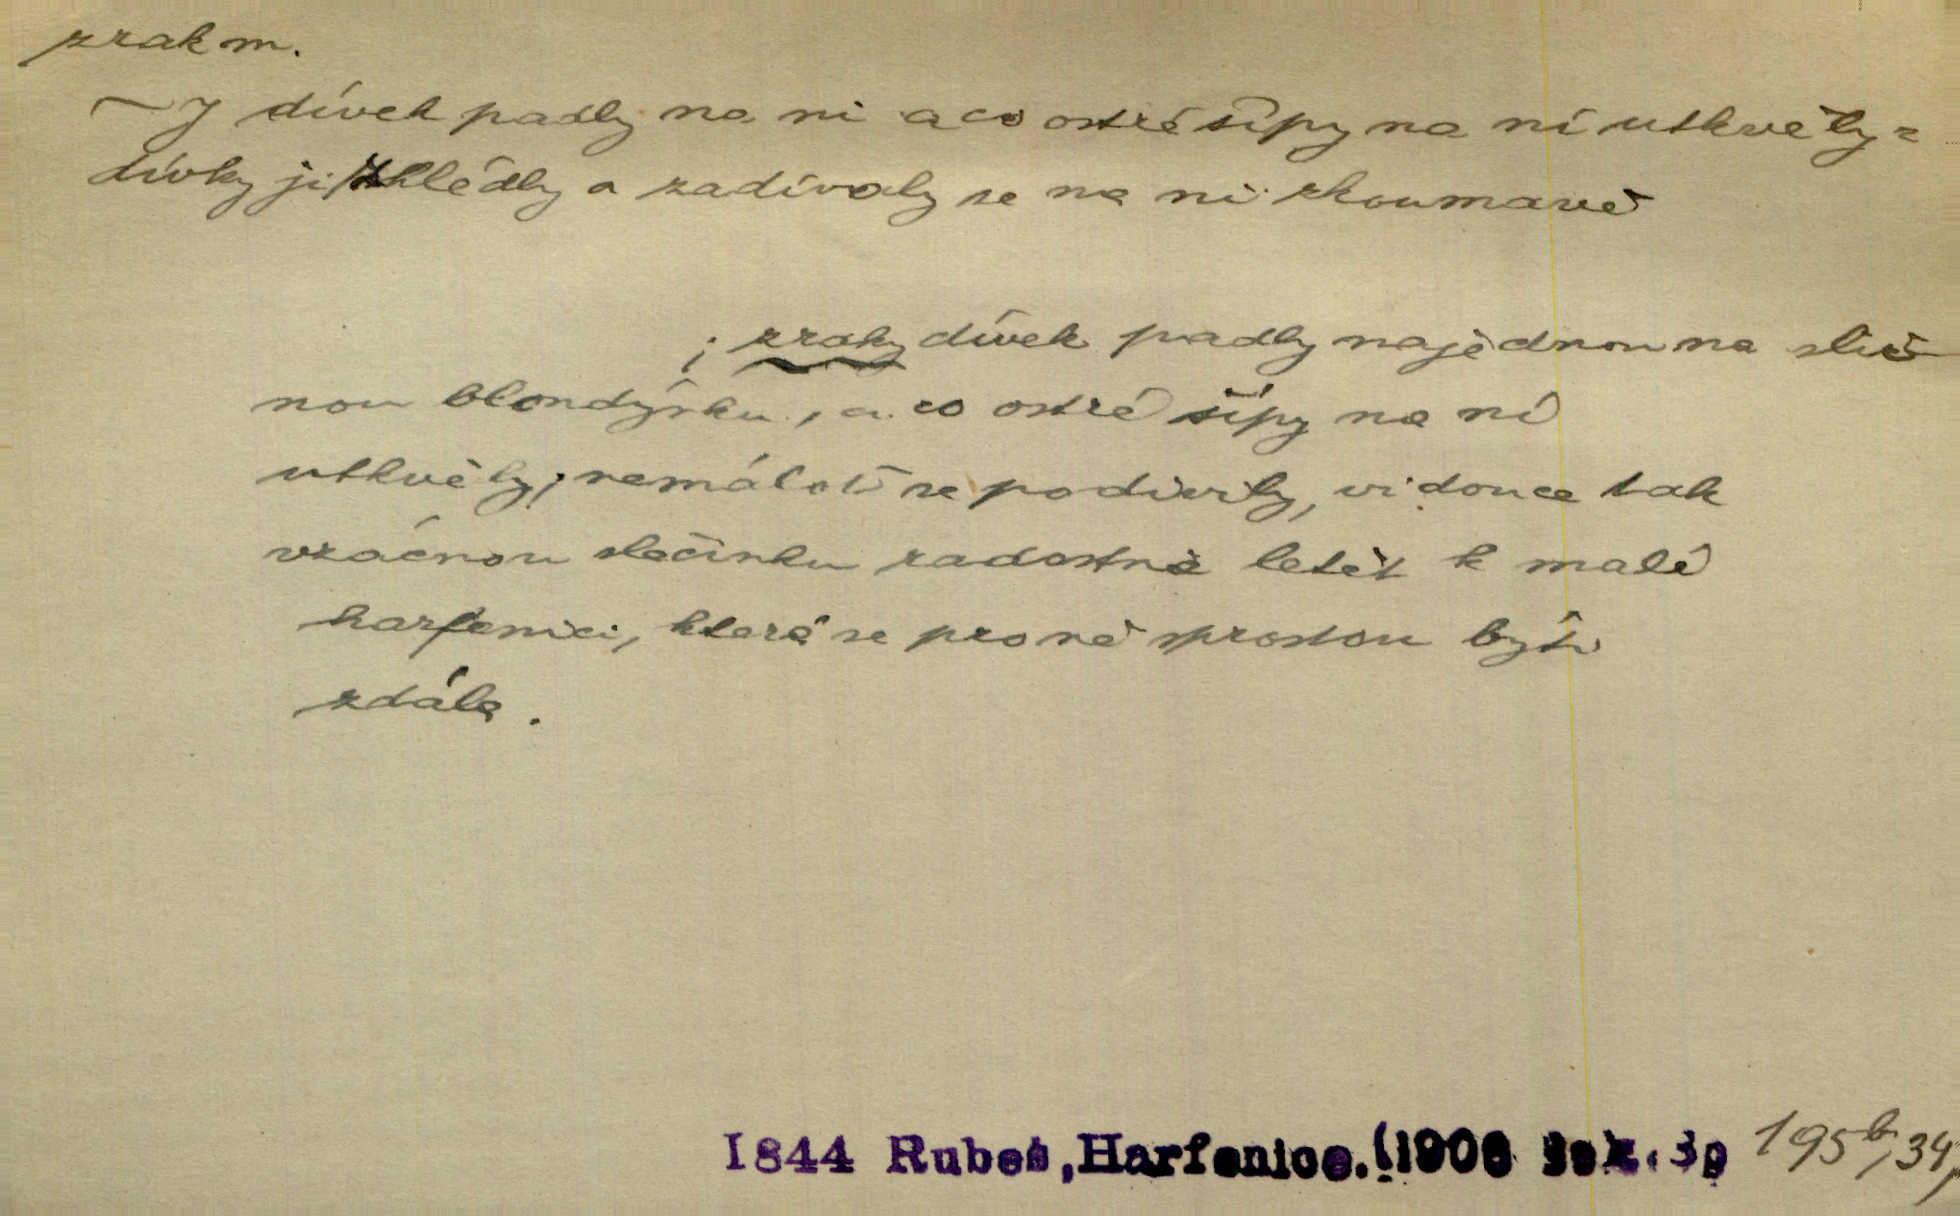 zrak m.
~y dívek padly na ni a co ostré šípy na ní utkvěly =
dívky ji shlédly a zadívaly se na ni zkoumavě
; zraky dívek padly najednou na slič-
nou blondýnku, a co ostré šípy na ní
utkvěly; nemálotě se podivily, vidouce tak
vzácnou slečinku radostně letět k malé
harfenici, která se pro ně sprostou býti
zdála.
1844 Rubeš, Harfenice. (1906 39 195b, 34,